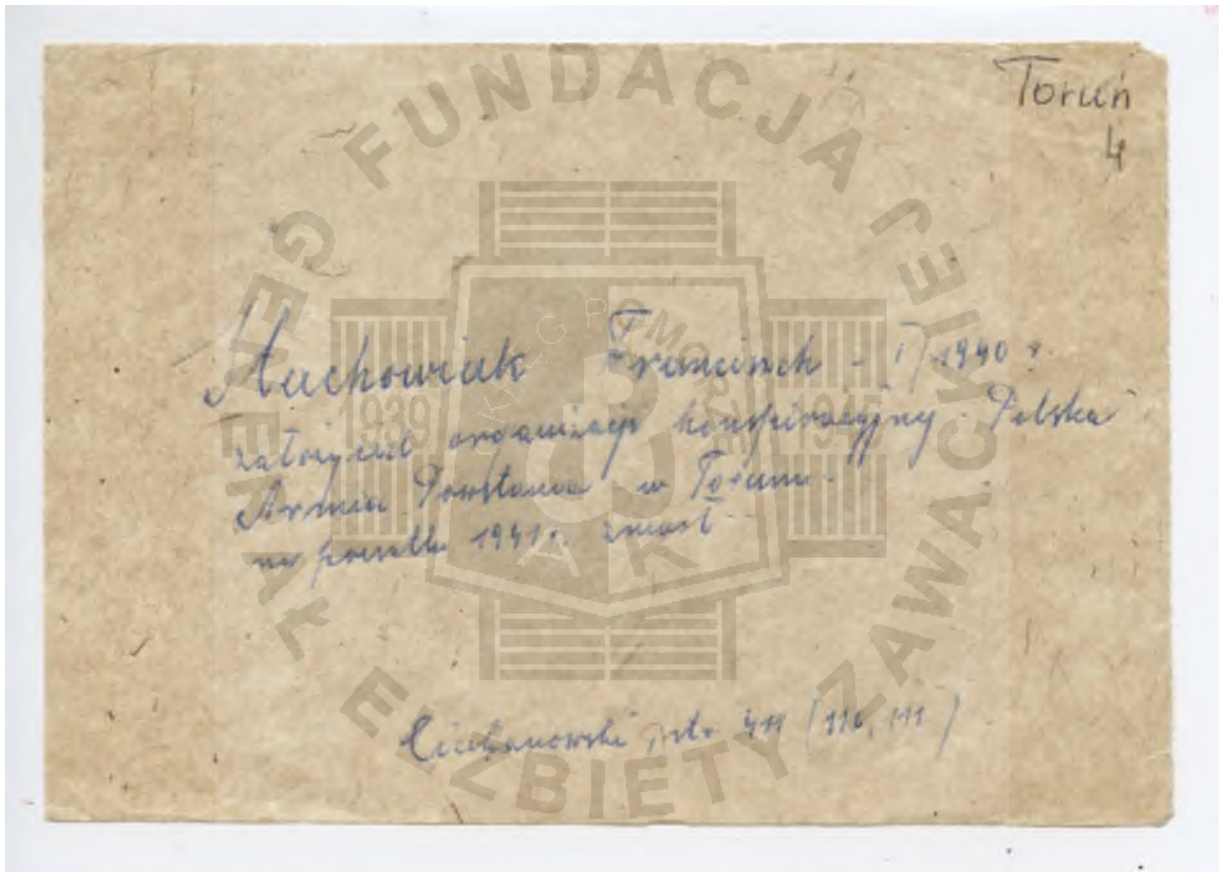 Toruń
4
Stachowiak Franciszek - 1940 r.
założył organizację konspiracyjną - Polska
Armia Powstania w Toruniu.
na początku 1941 r. zmarł
Ciechanowski, str. 411 (110, 111)
FUNDACJA GENERAŁ ELŻBIETY ZAWACKIEJ
OKRĘG POMORZE
1939 1945
AK